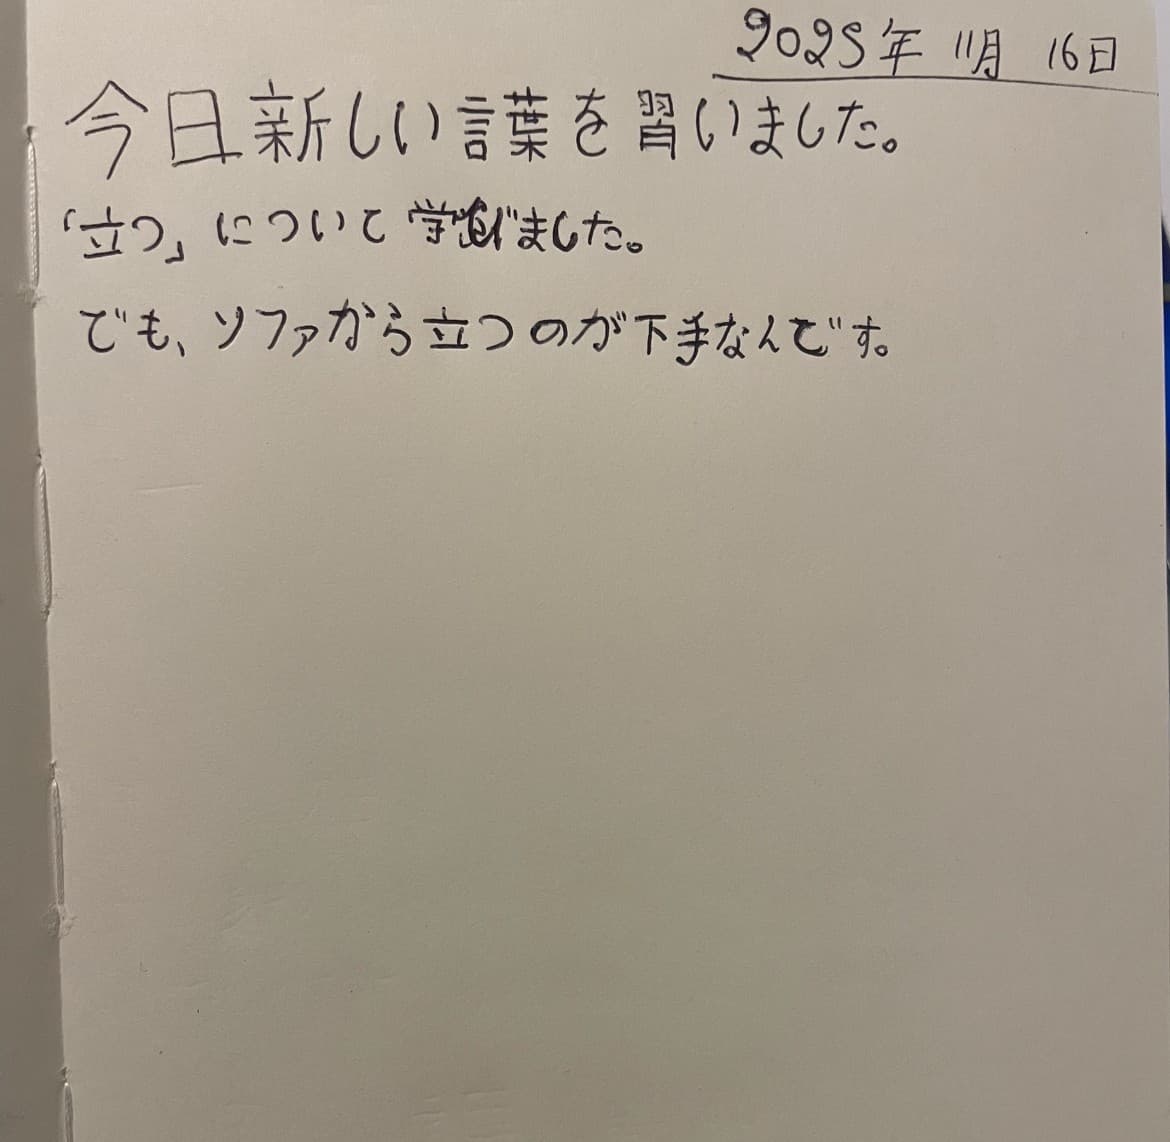 2025年 11月 16日
今日新しい言葉を習いました。
「立つ」について学びました。
でも、ソファから立つのが下手なんです。